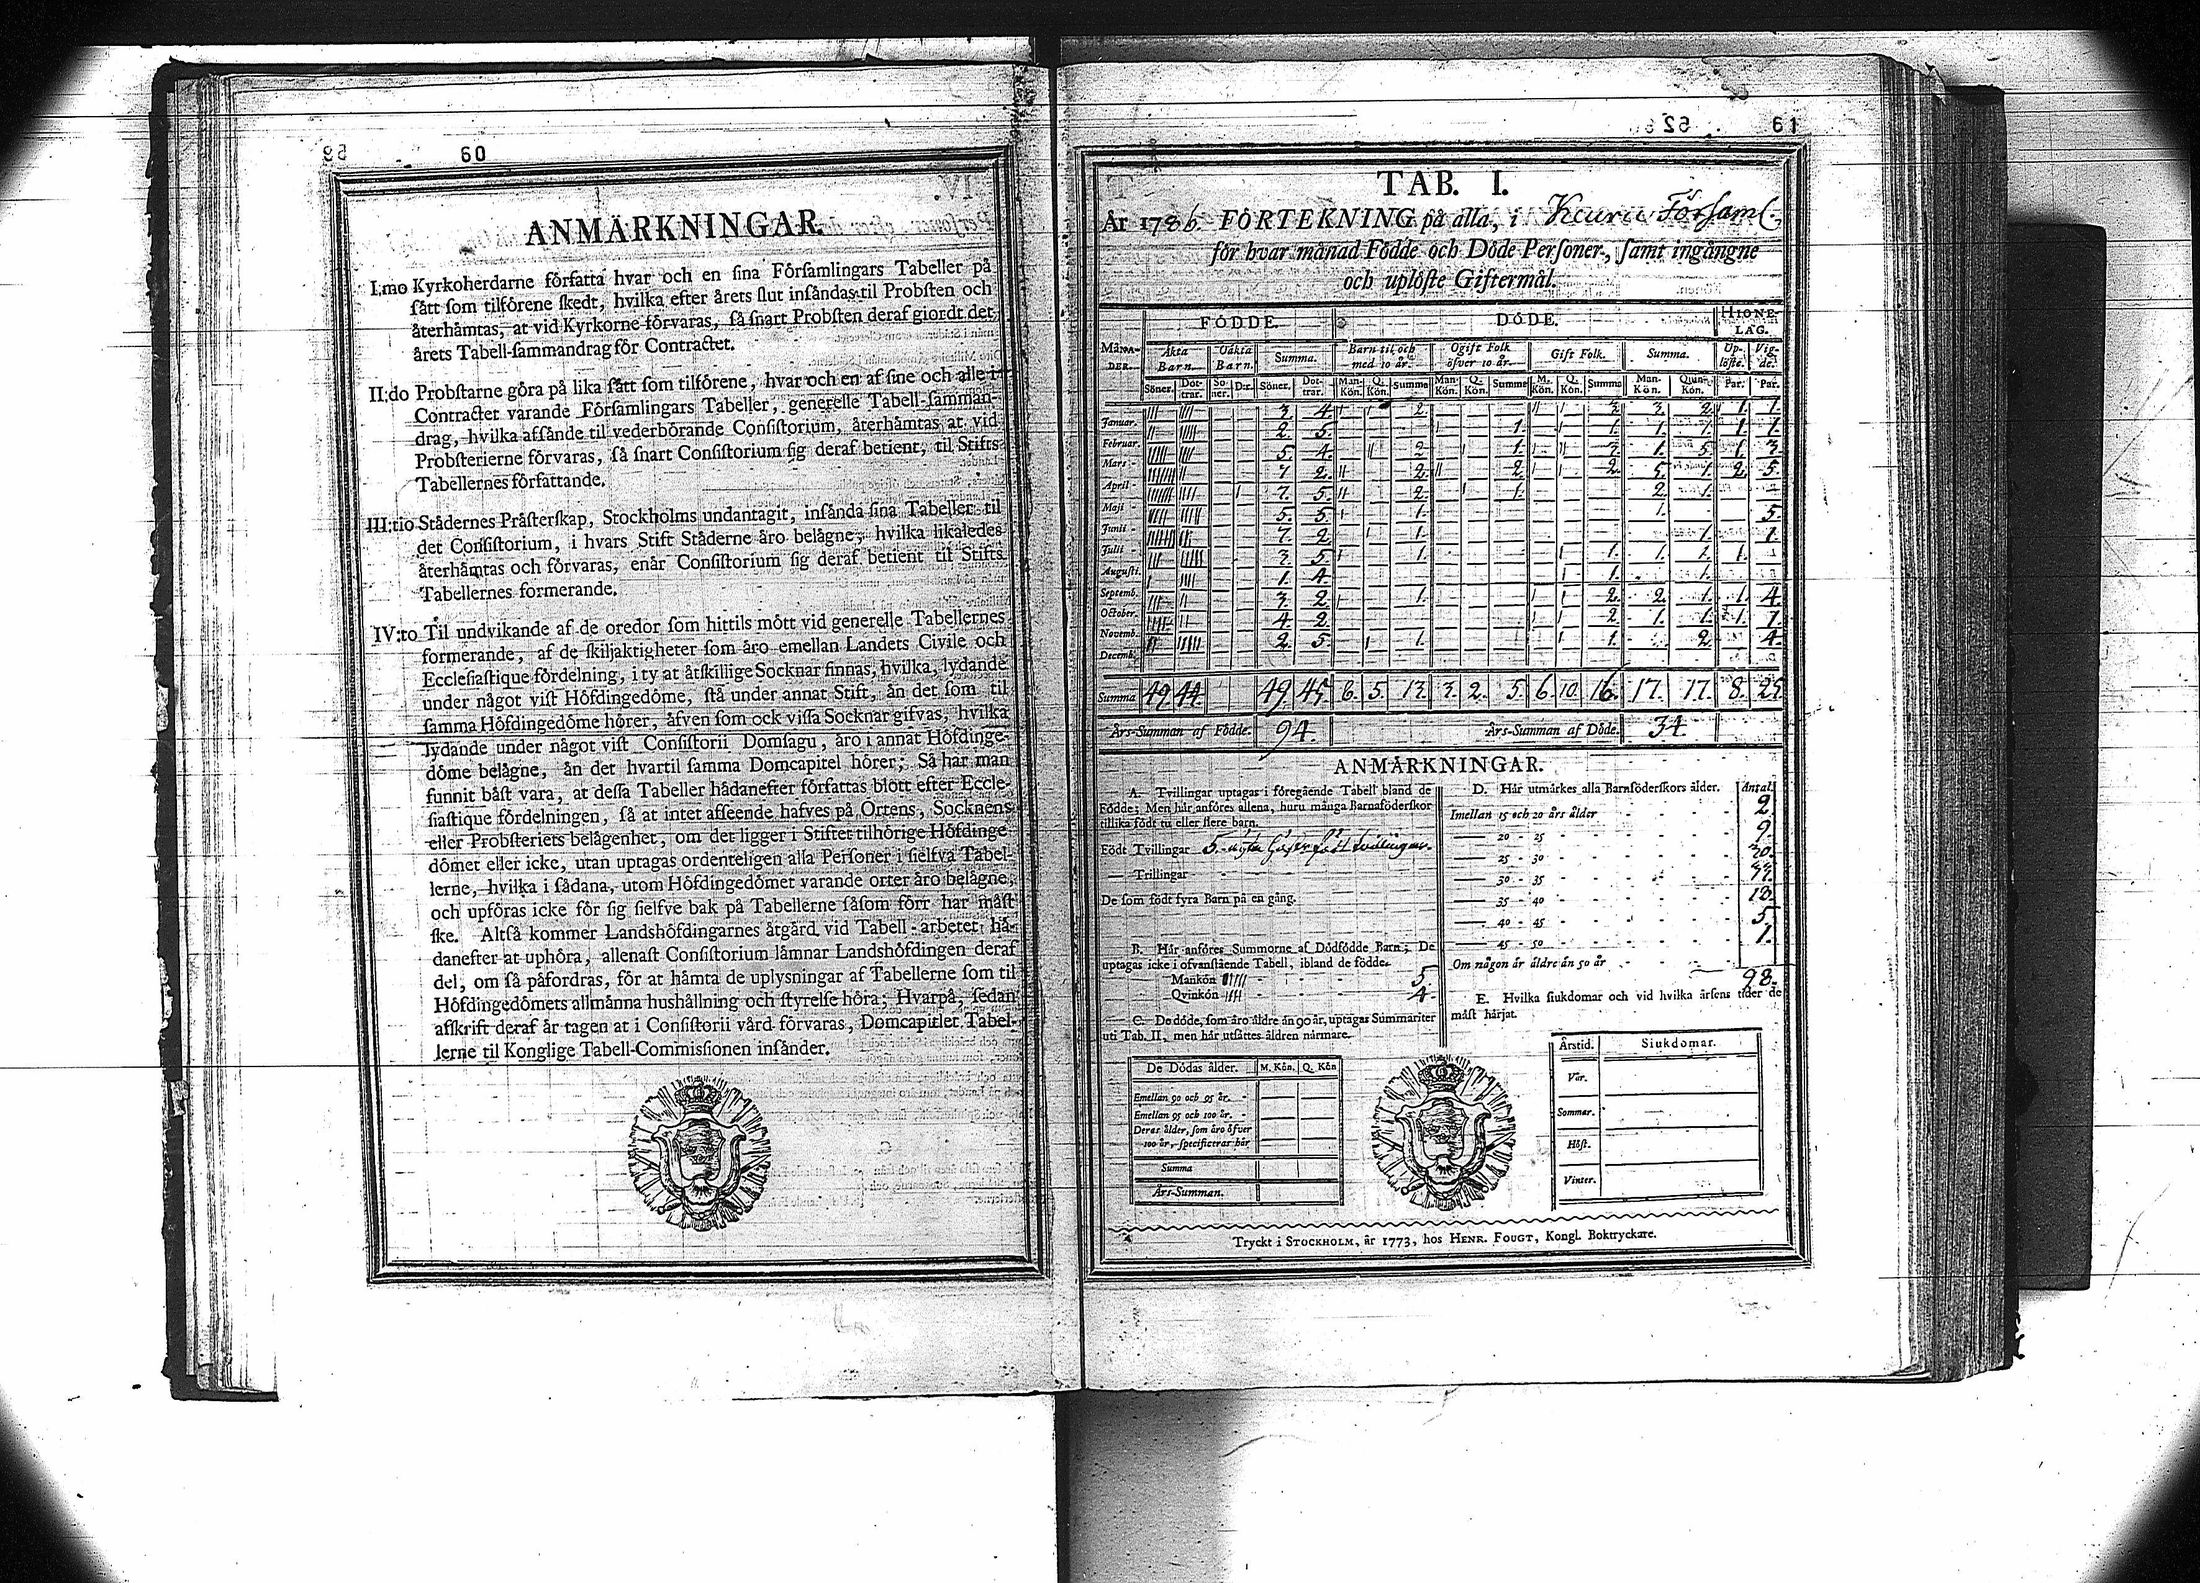 60
ANMÄRKNINGAR.
I.mo Kyrkoherdarne författa hvar och en sina Församlingars Tabeller på
sått som tilförene skedt, hvilka efter årets slut insåndas til Probsten och
återhåmtas, at vid Kyrkorne förvaras, så snart Probsten deraf giordt det
årets Tabell-sammandrag för Contractet.
II:do Probstarne göra på lika sått som tilförene, hvar och en af sine och alle i
Contractet varande Församlingars Tabeller, generelle Tabell-samman-
drag, hvilka afsånde til vederbörande Consistorium, återhåmtas at vid
Probsterierne förvaras, så snart Consistorium sig deraf betient, til Stifts-
Tabellernes författande.
III:tio Stådernes Pråsterskap, Stockholms undantagit, insånda sina Tabeller til
det Consistorium, i hvars Stift Ståderne åro belågne, hvilka likaledes
återhåmtas och förvaras, enår Consistorium sig deraf betient til Stifts
Tabellernes formerande.
IV:to Til undvikande af de oredor som hittils mött vid generelle Tabellernes
formerande, af de skiljaktigheter som åro emellan Landets Civile och
Ecclesiastique fördelning, i ty at åtskillige Socknar finnas, hvilka, lydande
under något vist Höfdingedöme, stå under annat Stift, ån det som til
samma Höfdingedöme hörer, åfven som ock vissa Socknar gifvas, hvilka
lydande under något vist Consistorii Domsagu, åro i annat Höfdinge-
döme belågne, ån det hvartil samma Domcapitel hörer; Så har man
funnit båst vara, at dessa Tabeller hådanefter författas blott efter Eccle-
siastique fördelningen, så at intet afseende hafves på Ortens, Socknens
eller Probsteriets belågenhet, om det ligger i Stiftet tilhörige Höfdinge-
dömet eller icke, utan uptagas ordenteligen alla Personer i sielfva Tabel-
lerne, hvilka i sådana, utom Höfdingedömet varande orter åro belågne,
och upföras icke för sig sielfve bak på Tabellerne såsom förr har måst
ske. Altså kommer Landshöfdingarnes åtgård vid Tabell-arbetet hå-
danefter at uphöra, allenast Consistorium låmnar Landshöfdingen deraf
del, om så påfordras, för at håmta de uplysningar af Tabellerne som til
Höfdingedömets allmånna hushållning och styrelse höra; Hvarpå, sedan
afskrift deraf år tagen at i Consistorii vård förvaras, Domcapitlet Tabel-
lerne til Konglige Tabell-Commissionen insånder.
61
TAB. I.
År 1786. FÖRTEKNING på alla, i Kaura Församl.
för hvar månad Födde och Döde Personer, samt ingångne
och uplöste Giftermål.
FÖDDE. DÖDE. HIONE-
LAG.
MÅNA-
DER. Äkta Barn. Oäkta Barn. Summa. Barn til och med 10 år. Ogift Folk öfver 10 år. Gift Folk. Summa. Up-
löste. Vig-
de.
Söner. Dot-
trar. So-
ner. Dr. Söner. Dot-
trar. Man-
Kön. Q. Kön. Summa Man-
Kön. Q. Kön. Summa M. Kön. Q. Kön. Summa Man-
Kön. Qvin-
Kön. Par. Par.
Januar. 3. 4. 2. 3. 3. 2. 1. 1.
Februar. 2. 5. 1. 1. 1. 1. 1. 1.
Mars 5. 4. 2 1. 3. 1. 5. 1. 3.
April 7 2. 2. 2. 2. 5. 1. 2. 5.
Maji 7. 5. 2. 1. 2. 1.
Junii 5. 5. 1. 1. 5.
Julii 7. 2 1. 1. 1.
Augusti. 3. 5. 1. 1. 1. 1. 1.
Septemb. 1. 4. 1. 1.
October. 3. 2. 1. 2. 2. 1. 1. 4.
Novemb. 4. 2. 2. 1. 1. 1. 1.
Decemb. 2. 5. 1. 1. 2. 4.
Summa 49. 44. 1 49. 45. 6. 5. 13. 3. 2. 5. 6. 10. 16. 17. 17. 8. 25.
Års-Summan af Födde. 94. Års-Summan af Döde. 34
ANMÄRKNINGAR.
A. Tvillingar uptagas i föregående Tabell bland de
Födde; Men hår anföres allena, huru många Barnaföderskor
tillika födt tu eller flere barn.
Födt Tvillingar 5.
Trillingar
De som födt fyra Barn på en gång.
B. Hår anföres Summorne af Dödfödde Barn; De
uptagas icke i ofvanstående Tabell, ibland de födde.
Mankön 5.
Qvinkön 4.
C. De döde, som åro åldre ån 90 år, uptagas Summariter
uti Tab. II, men hår utsåttes åldren nårmare.
De Dödas ålder. M. Kön. Q. Kön
Emellan 90 och 95 år.
Emellan 95 och 100 år.
Deras ålder, som åro öfver
100 år, specificeras hår
Summa
Års-Summan.
D. Hår utmårkes alla Barnföderskors ålder. Antal.
Imellan 15 och 20 års ålder 2.
20 - 25 9.
25 - 30 30.
30 - 35 33.
35 - 40 18.
40 - 45 5
45 - 50 1.
Om någon år åldre ån 50 år
98.
E. Hvilka siukdomar och vid hvilka årsens tider de
måst hårjat.
Årstid. Siukdomar.
Vår.
Sommar.
Höst.
Vinter.
Tryckt i STOCKHOLM, år 1773, hos HENR. FOUGT, Kongl. Boktryckare.